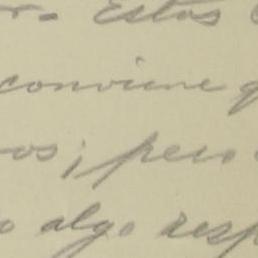 r. Estos
conviene q
os; pero
o algo resp